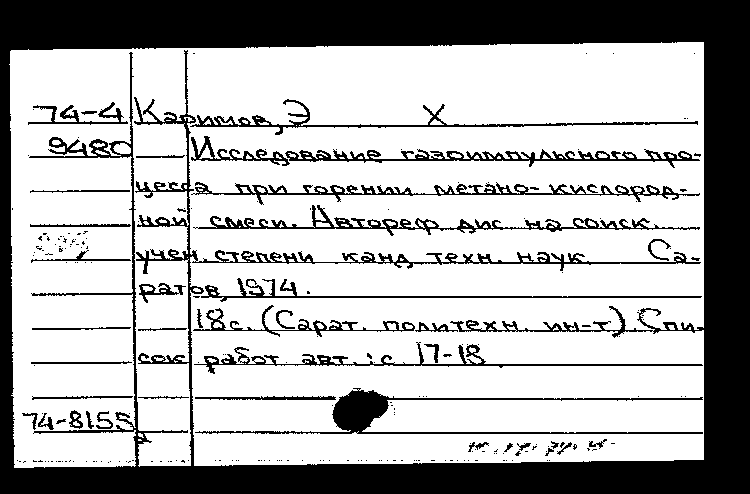 74-4 Каримов, Э X
9480 Исследование газоимпульсного про-
цесса при горении метано-кислород-
ной смеси. Автореф. дис. на соиск.
учен. степени канд. техн. наук. Са-
ратов, 1974.
18с. (Сарат. политехн. ин-т) Спи-
сок работ авт.: с. 17-18
74-8155